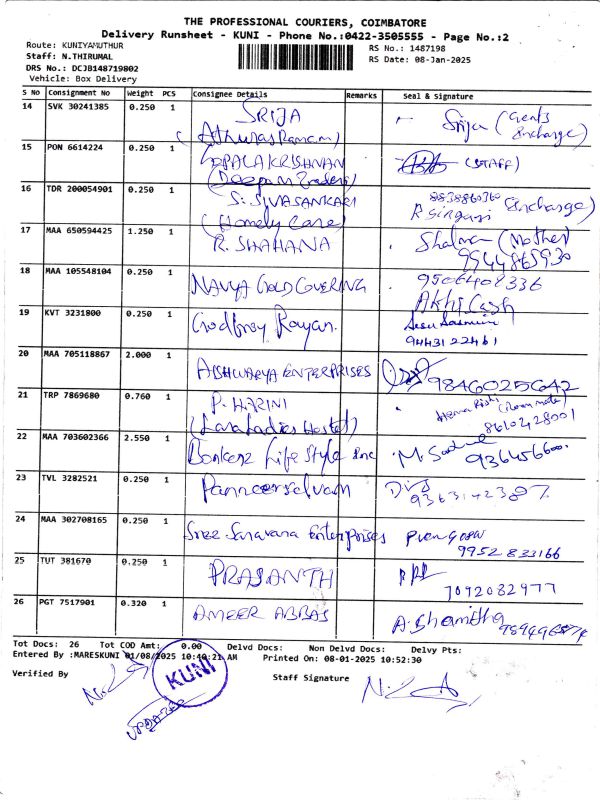 THE PROFESSIONAL COURIERS, COIMBATORE
Delivery Runsheet - KUNI - Phone No.:0422-3505555 - Page No.:2
Route: KUNIYAMUTHUR
RS No.: 1487198
Staff: N.THIRUMAL
RS Date: 08-Jan-2025
DRS No.: DCJB148719802
Vehicle: Box Delivery
S No Consignment No Weight PCS Consignee Details Remarks Seal & Signature
14 SVK 30241385 0.250 1 SRIJA Srija (Gents Incharge)
15 PON 6614224 0.250 1 GOPALAKRISHNAN (STAFF)
(Deepam Traders)
16 TDR 200054901 0.250 1 S. SIVASANKARI 8838860360
(Homely Care) Incharge)
17 MAA 650594425 1.250 1 R. SHAHANA (Mother)
9944865930
18 MAA 105548104 0.250 1 NAVYA GOLD COVERING 9506408336
Akhj Cash
19 KVT 3231800 0.250 1 Godfrey Rayan.
9443122461
20 MAA 705118867 2.000 1 AISHWARYA ENTERPRISES 9846025642
21 TRP 7869680 0.760 1 P. HARINI (Room mate)
(Lara Ladies Hostel) 8610428001
22 MAA 703602366 2.550 1 Bonkerz Life Style Inc
23 TVL 3282521 0.250 1 Panneerselvam
24 MAA 302708165 0.250 1 Sree Saravana Enterprises
9952833166
25 TUT 381670 0.250 1 PRASANTH
7092082977
26 PGT 7517901 0.320 1 AMEER ABBAS A. Shamitha
Tot Docs: 26 Tot COD Amt: 0.00 Delvd Docs: Non Delvd Docs: Delvy Pts:
Entered By :MARESKUNI 01/08/2025 10:40:21 AM Printed On: 08-01-2025 10:52:30
Verified By KUNI Staff Signature